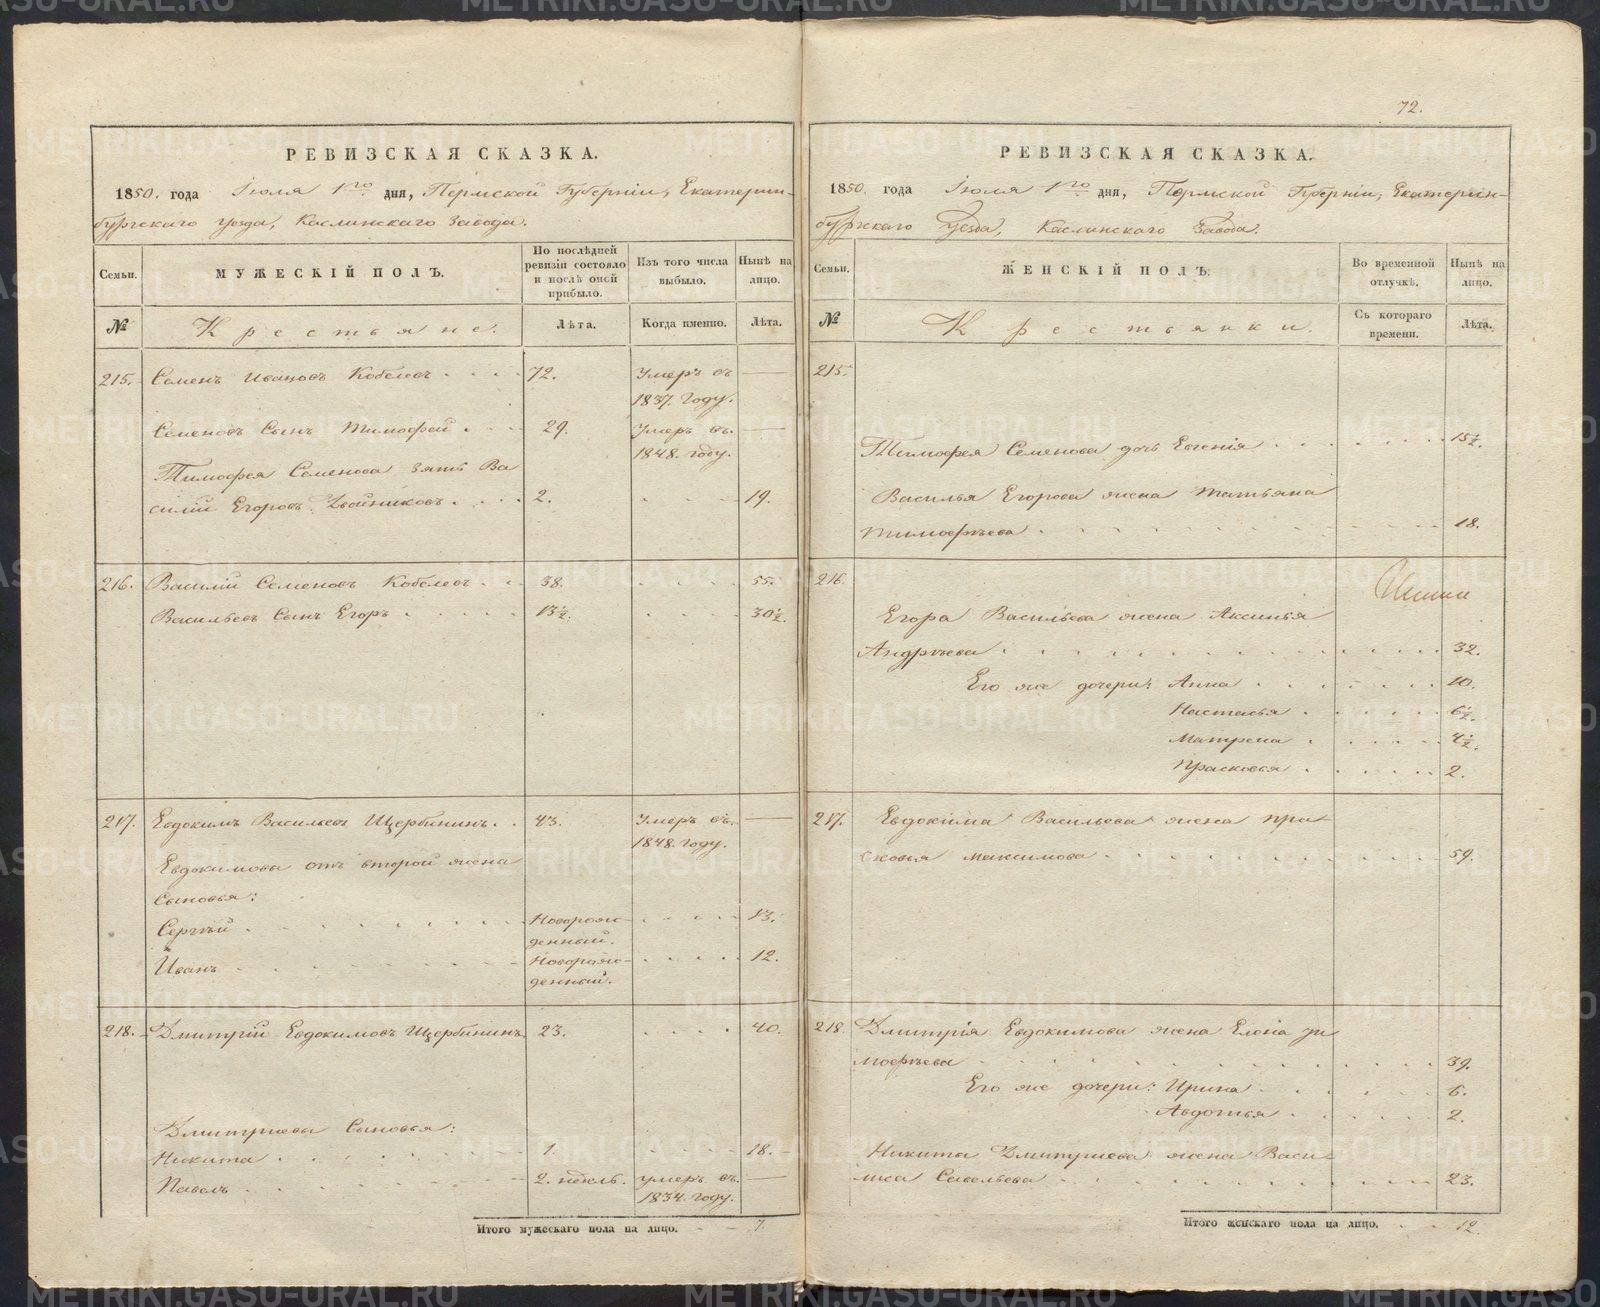 РЕВИЗСКАЯ СКАЗКА.
1850. года Іюля 1го дня, Пермской Губерніи, Екатерин-
бургскаго уѣзда, Каслинскаго Завода.
Семьи.
МУЖЕСКІЙ ПОЛЪ.
По послѣдней ревизіи состояло и послѣ оной прибыло.
Изъ того числа выбыло.
Нынѣ на лицо.
№
Крестьяне.
Лѣта.
Когда именно.
Лѣта.
215. Семенъ Ивановъ Кобелевъ 72. Умеръ въ —
1837. году.
Семеновъ Сынъ Тимофей 29. Умеръ въ. —
1848. году.
Тимофея Семенова зять Ва
силій Егоровъ Двойниковъ 2. 19.
216. Василій Семеновъ Кобелевъ 38. 55.
Васильевъ Сынъ Егоръ 13½. 30½.
217. Евдокимъ Васильевъ Щербининъ 43. Умеръ въ. —
1848. году.
Евдокимова отъ второй жена
Сыновья:
Сергѣй Новорож- 13.
денный.
Иванъ Новорож- 12.
денный.
218. Дмитрій Евдокимовъ Щербининъ 23. 40.
Дмитриева Сыновья:
Никита 1. 18.
Павелъ 2. недѣль. умеръ въ. —
1834. году.
Итого мужескаго пола на лицо. 7.
72.
РЕВИЗСКАЯ СКАЗКА.
1850. года Іюля 1го дня, Пермской Губерніи, Екатерин-
бургскаго Уѣзда, Каслинскаго Завода.
Семьи.
ЖЕНСКІЙ ПОЛЪ.
Во временной отлучкѣ.
Нынѣ на лицо.
№
Крестьянки.
Съ котораго времени.
Лѣта.
215.
Тимофея Семенова дочь Евгенія 15½.
Василья Егорова жена Татьяна
Тимофѣева 18.
216.
Егора Васильева жена Аксинья
Андрѣева 32.
Его же дочери: Анна 10.
Настасья 6½.
Матрена 4½.
Прасковья 2.
217. Евдокима Васильева жена Пра-
сковья Максимова 59.
218 Дмитрія Евдокимова жена Елена
мофѣева 39.
Его же дочери: Ирина 6.
Авдотья 2.
Никита Дмитриева жена Васи-
лиса Савельева 23.
Итого женскаго пола на лицо. 12.
METRIKI.GASO-URAL.RU